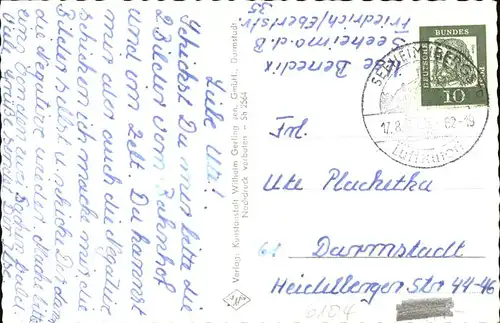 Liebe Uta!
Schickst Du mir bitte die
2 Bilder vom Bahnhof
und vom Zelt. Du kannst
mir aber auch die Negative
schicken ich mache mir die
Bilder selbst u. schicke Dir dann
die Negative wieder. Mache bitte
Verlag: Kunstanstalt Wilhelm Gerling jun. GmbH., Darmstadt
Nachdruck verboten - Sh 2564
de Benedix
Seeheim a. d. B
Friedrich/Ebertstr.
35
DEUTSCHE BUNDESPOST
10
SEEHEIM (BERGSTR)
17.8. 62-16
LUFTKURORT
Frl.
Ute Plachetka
61 Darmstadt
Heidelberger Str 44-46
6104